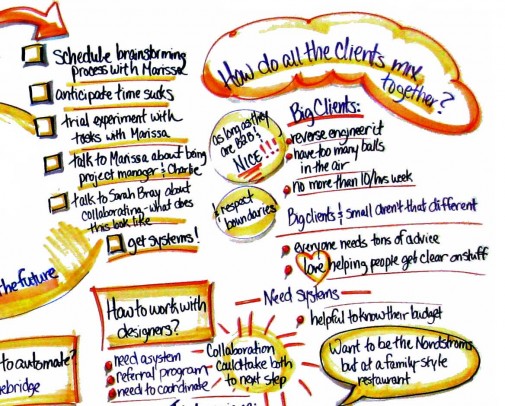 schedule brainstorming
process with Marissa
anticipate time sucks
trial experiment with
tasks with Marissa
talk to Marissa about being
project manager & Charlie
talk to Sarah Bray about
collaborating - what does
this look like
get systems!
the future
How do all the clients mix
together?
as long as they
are B2B &
NICE!!!
& respect
boundaries
Big Clients:
reverse engineer it
have too many balls
in the air
no more than 10/hrs week
Big clients & small aren't that different
everyone needs tons of advice
love helping people get clear on stuff
Need systems
helpful to know their budget
How to work with
designers?
need a system
referral program
need to coordinate
Collaboration
could take both
to next step
Want to be the Nordstroms
but at a family-style
restaurant
to automate?
ebridge